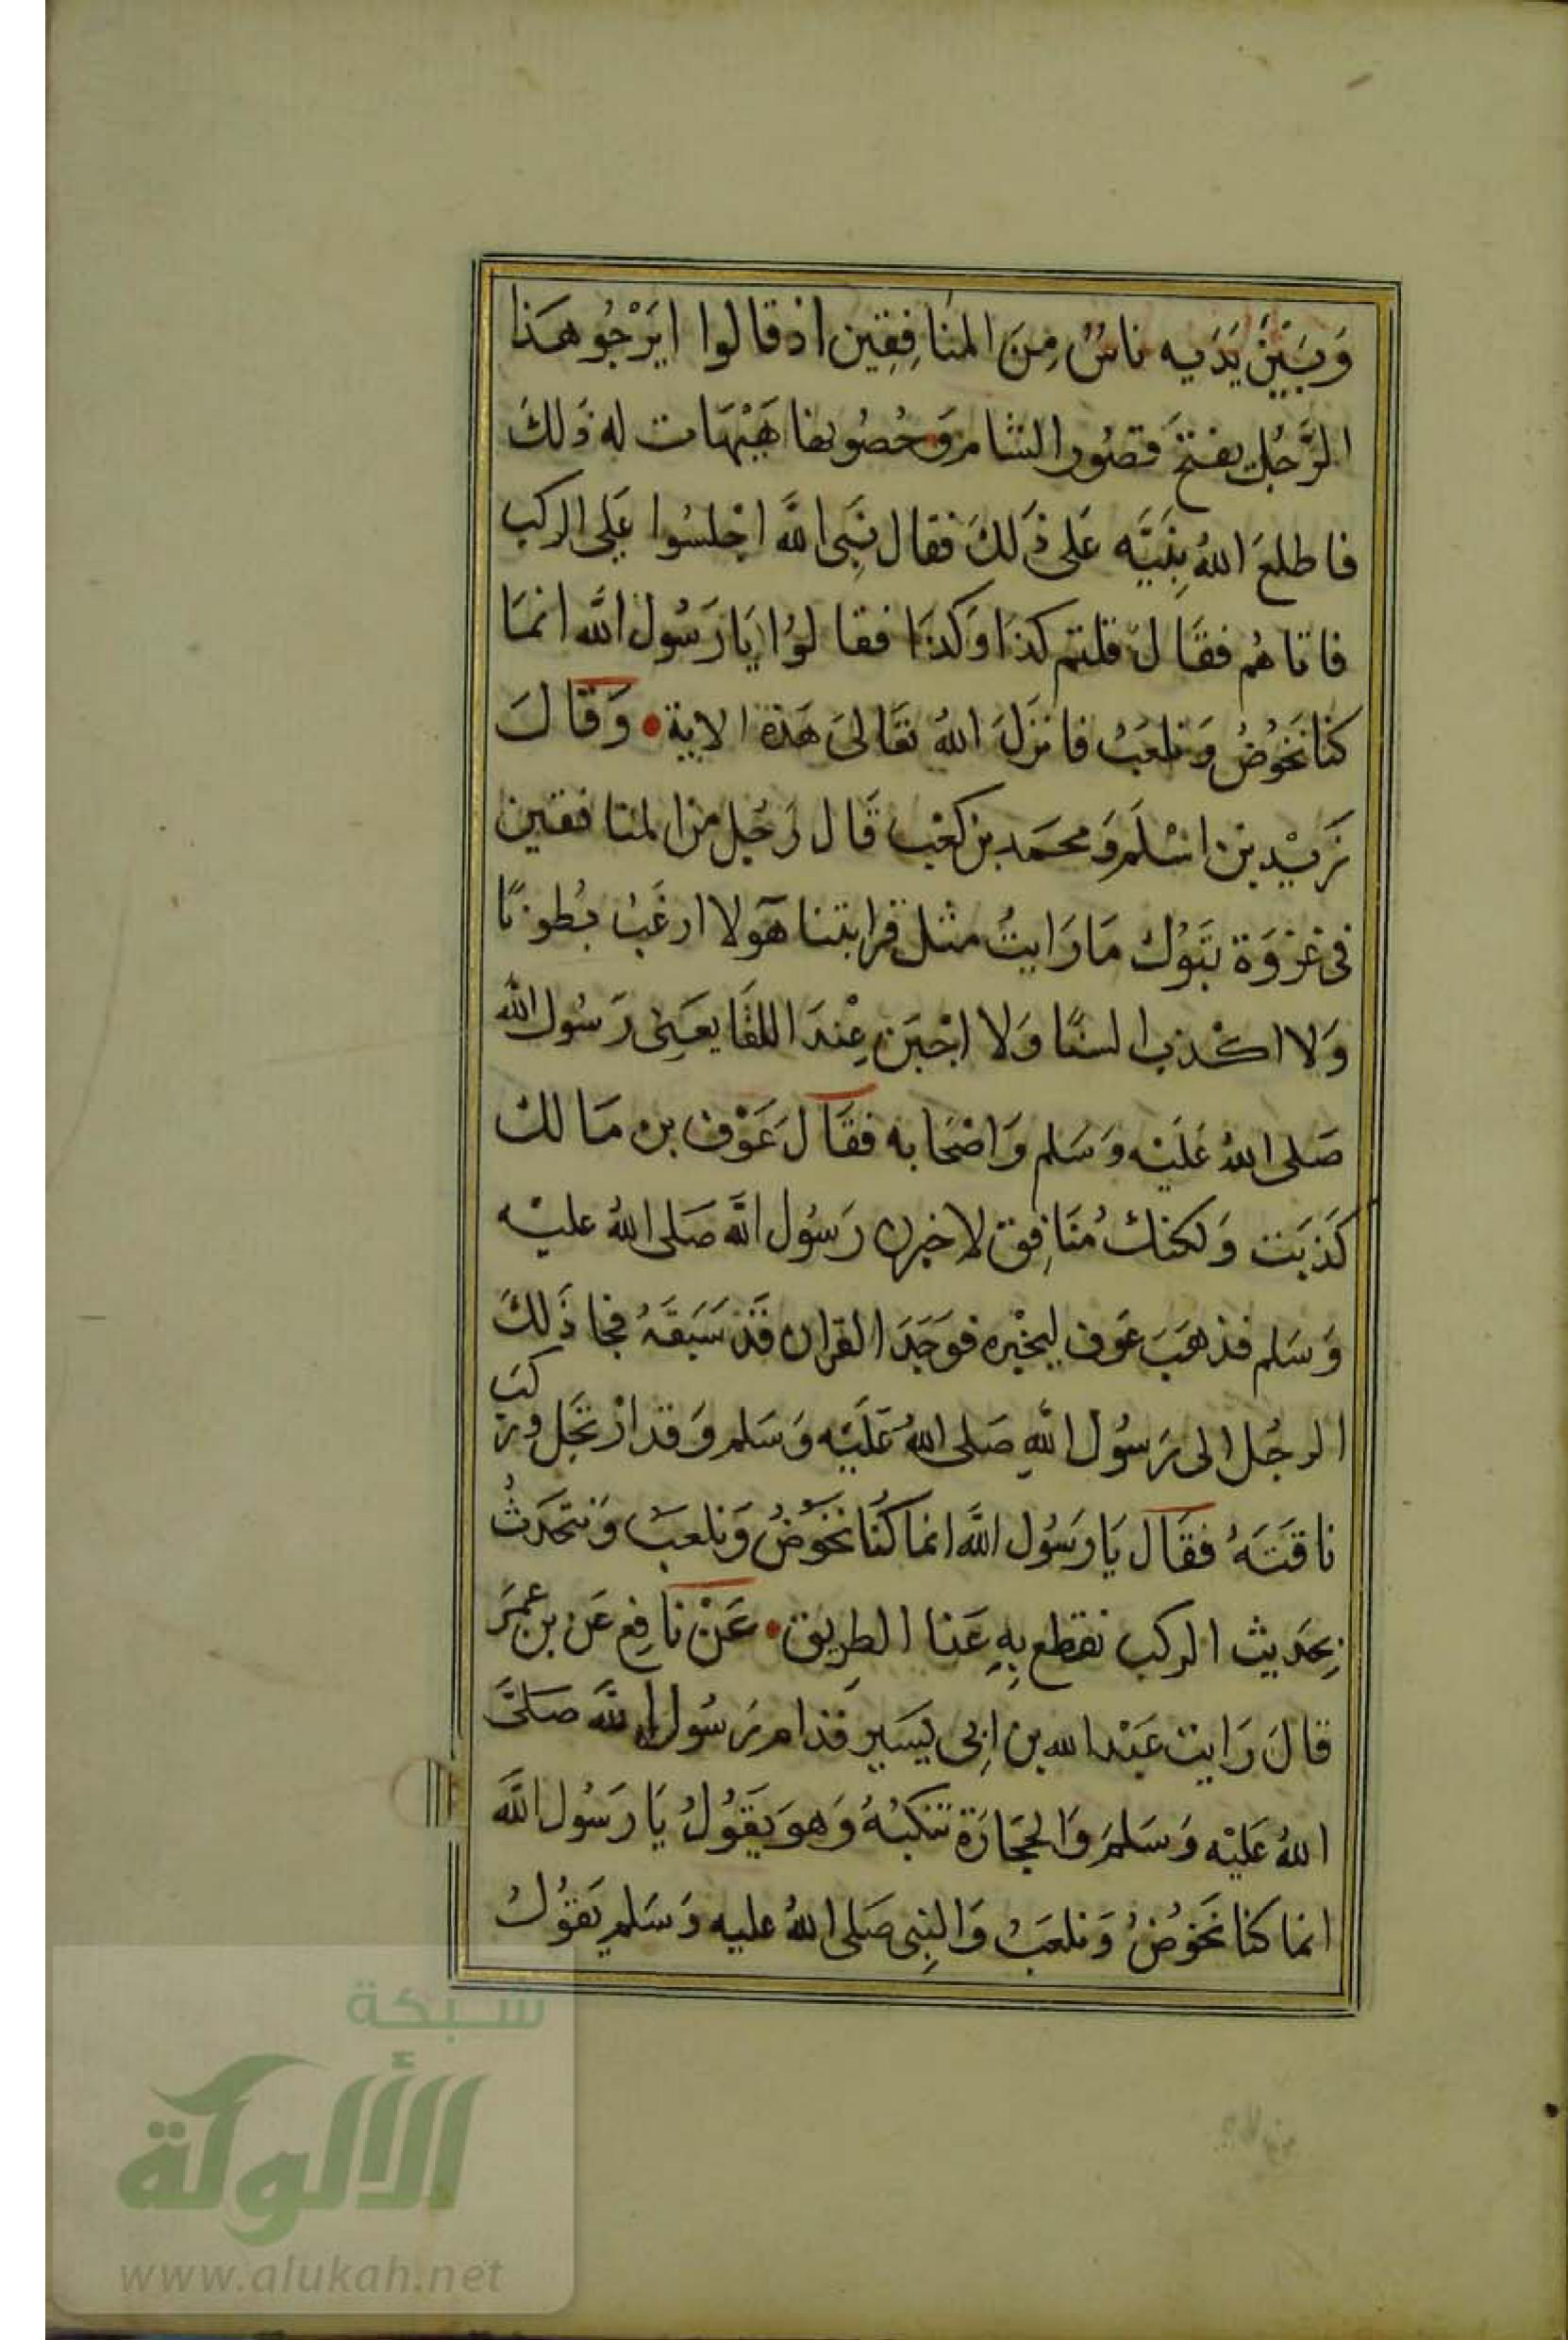 وَبَيْنَ يَدَيه ناسٌ مِنَ المنافِقِين اذ قالوا ايَرْجُو هَذا
الرَّجُل يفتحَ قصُور الشام وَحُصُونها هَيْهَات له ذَلكَ
فاطلعَ اللهُ نبيَّه عَلى ذَلكَ فقال نَبِي اللَّه اجْلسُوا عَلى الركب
فاتاهُم فقَال قلتم كذا وَكذَا فقالوُا يَا رَسُول اللَّه انمَا
كنا نَخُوْضُ وَنلعَبُ فانزَلَ اللهُ تعَالىَ هَذة الاية وَقالَ
زَيْد بن اسْلَم وَمحمَد بن كعْب قَال رَجُل من المنافقين
فى غزْوَة تبَوُك مَا رَايتُ مثل قرابتنا هَولا ارغَبُ بُطونًا
وَلا اكْذب السنًا وَلا اجْبَن عِنْدَ اللقَا يعَنِى رَسُول الله
صَلى اللهُ عَليْه وَسَلم وَاصْحَابه فقَالَ عَوْف بن مَالك
كَذبَت وَلكنك مُنَافِق لاخبرن رَسُول الله صَلى اللهُ عليْه
وَسَلم فذهَبَ عَوف ليخبْره فوَجَدَ القران قَدْ سَبَقَهُ فجا ذَلكَ
الرجُل الى رَسوُل اللَّهِ صَلى اللهُ عَليْه وَسَلم وَقد ارْتَحَل وركبَ
ناقتَهُ فقَال يَا رَسُول اللَّه انما كُنا نخوْضُ وَنلعبَ وَنتحَدثُ
بِحَديث الركب نقطع بِهِ عَنا الطرِيق عَنْ نافِع عَن بن عُمَرَ
قالَ رَايت عَبْد الله بن ابِى يَسَير قدام رَسُول اللَّه صَلىَّ
اللهُ عَليْه وَسَلمَ وَالحجَارَة تنكبُهُ وَهوَ يَقوُلُ يَا رَسُول اللَّه
انما كنا نَخوُضُ وَنلعَبُ وَالنبِى صَلى اللهُ عليه وَسَلم يَقوُلُ
شبكة
الألوكة
www.alukah.net